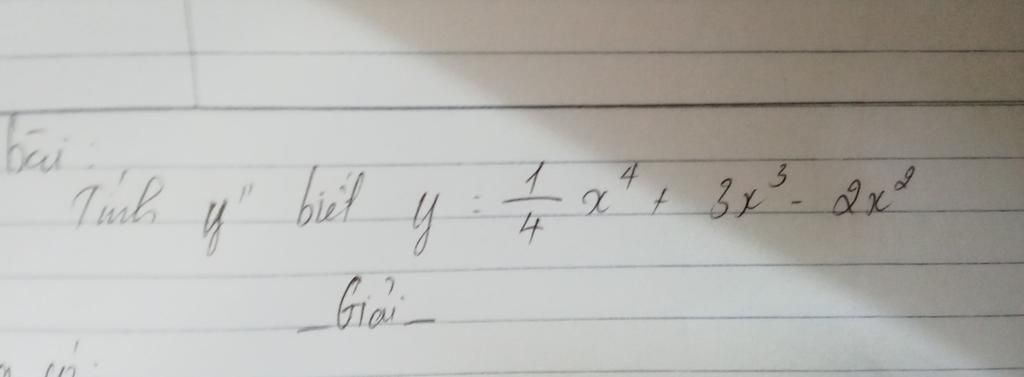 bài:
Tính y" biết y = 1/4 x⁴ + 3x³ - 2x²
_Giải_
có: